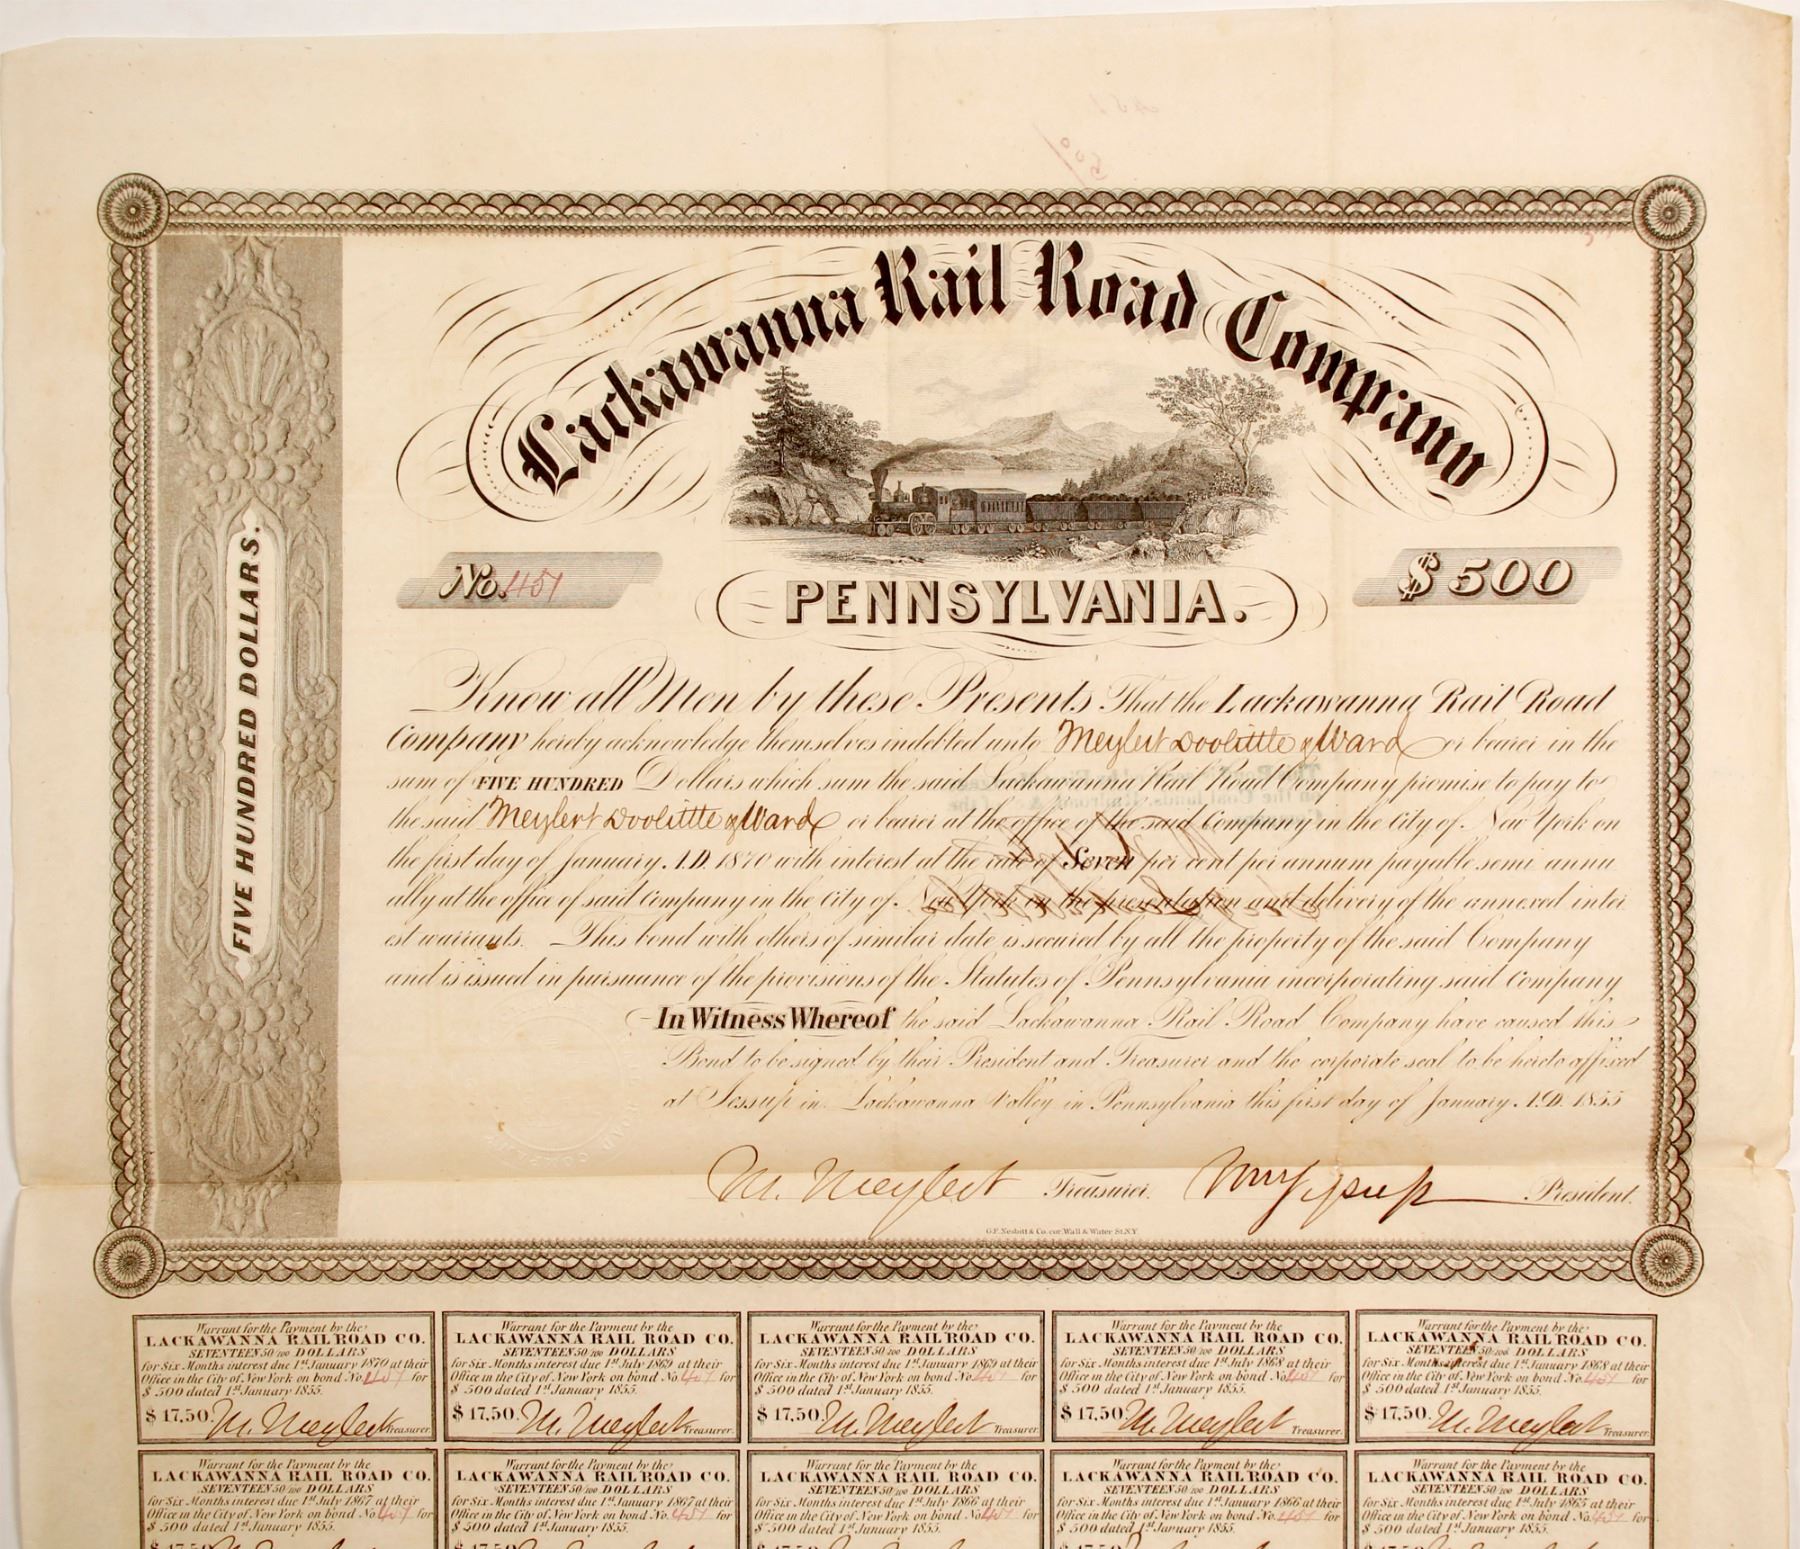 Lackawanna Rail Road Company
No. 457
$500
PENNSYLVANIA.
FIVE HUNDRED DOLLARS.
Know all Men by these Presents That the Lackawanna Rail Road
Company hereby acknowledge themselves indebted unto Meylert Doolittle & Ward or bearer in the
sum of FIVE HUNDRED Dollars which sum the said Lackawanna Rail Road Company promise to pay to
the said Meylert Doolittle & Ward or bearer at the office of the said Company in the City of New York on
the first day of January A.D. 1870 with interest at the rate of Seven per cent per annum payable semi annu
ally at the office of said Company in the City of New York on the presentation and delivery of the annexed inter
est warrants. This bond with others of similar date is secured by all the property of the said Company
and is issued in pursuance of the provisions of the Statutes of Pennsylvania incorporating said Company
In Witness Whereof the said Lackawanna Rail Road Company have caused this
Bond to be signed by their President and Treasurer and the corporate seal to be hereto affixed
at Jessup in Lackawanna Valley in Pennsylvania this first day of January A.D. 1855
M. Meylert Treasurer. Wm Jessup President.
G.F. Nesbitt & Co. cor. Wall & Water St. N.Y.
Warrant for the Payment by the
LACKAWANNA RAIL ROAD CO.
SEVENTEEN 50/100 DOLLARS
for Six Months interest due 1st January 1870 at their
Office in the City of New York on bond No 457 for
$500 dated 1st January 1855.
$17,50. M. Meylert Treasurer.
Warrant for the Payment by the
LACKAWANNA RAIL ROAD CO.
SEVENTEEN 50/100 DOLLARS
for Six Months interest due 1st July 1869 at their
Office in the City of New York on bond No. 457 for
$500 dated 1st January 1855.
$17,50. M. Meylert Treasurer.
Warrant for the Payment by the
LACKAWANNA RAIL ROAD CO.
SEVENTEEN 50/100 DOLLARS
for Six Months interest due 1st January 1869 at their
Office in the City of New York on bond No. 457 for
$500 dated 1st January 1855.
$17,50. M. Meylert Treasurer.
Warrant for the Payment by the
LACKAWANNA RAIL ROAD CO.
SEVENTEEN 50/100 DOLLARS
for Six Months interest due 1st July 1868 at their
Office in the City of New York on bond No. 457 for
$500 dated 1st January 1855.
$17,50. M. Meylert Treasurer.
Warrant for the Payment by the
LACKAWANNA RAIL ROAD CO.
SEVENTEEN 50/100 DOLLARS
for Six Months interest due 1st January 1868 at their
Office in the City of New York on bond No. 457 for
$500 dated 1st January 1855.
$17,50. M. Meylert Treasurer.
Warrant for the Payment by the
LACKAWANNA RAIL ROAD CO.
SEVENTEEN 50/100 DOLLARS
for Six Months interest due 1st July 1867 at their
Office in the City of New York on bond No. 457 for
$500 dated 1st January 1855.
Warrant for the Payment by the
LACKAWANNA RAIL ROAD CO.
SEVENTEEN 50/100 DOLLARS
for Six Months interest due 1st January 1867 at their
Office in the City of New York on bond No. 457 for
$500 dated 1st January 1855.
Warrant for the Payment by the
LACKAWANNA RAIL ROAD CO.
SEVENTEEN 50/100 DOLLARS
for Six Months interest due 1st July 1866 at their
Office in the City of New York on bond No. 457 for
$500 dated 1st January 1855.
Warrant for the Payment by the
LACKAWANNA RAIL ROAD CO.
SEVENTEEN 50/100 DOLLARS
for Six Months interest due 1st January 1866 at their
Office in the City of New York on bond No. 457 for
$500 dated 1st January 1855.
Warrant for the Payment by the
LACKAWANNA RAIL ROAD CO.
SEVENTEEN 50/100 DOLLARS
for Six Months interest due 1st July 1865 at their
Office in the City of New York on bond No. 457 for
$500 dated 1st January 1855.